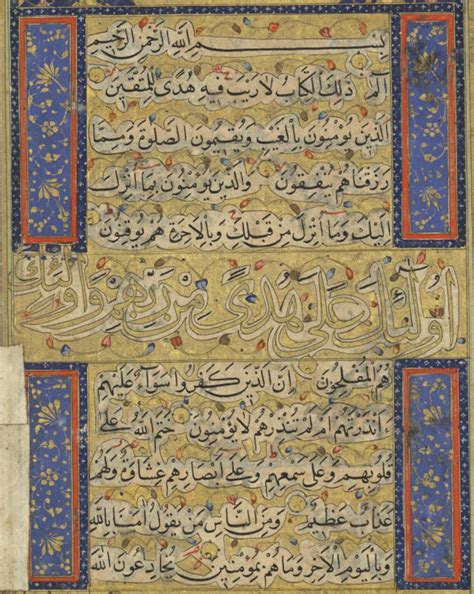 بسم الله الرحمن الرحيم
الم ذلك الكتاب لا ريب فيه هدى للمتقين
الذين يؤمنون بالغيب ويقيمون الصلوة ومما
رزقناهم ينفقون والذين يؤمنون بما انزل
اليك وما انزل من قبلك وبالاخرة هم يوقنون
اولئك على هدى من ربهم واولئك
هم المفلحون ان الذين كفروا سواء عليهم
ءانذرتهم ام لم تنذرهم لا يؤمنون ختم الله على
قلوبهم وعلى سمعهم وعلى ابصارهم غشاوة ولهم
عذاب عظيم ومن الناس من يقول امنا بالله
وباليوم الاخر وما هم بمؤمنين يخادعون الله